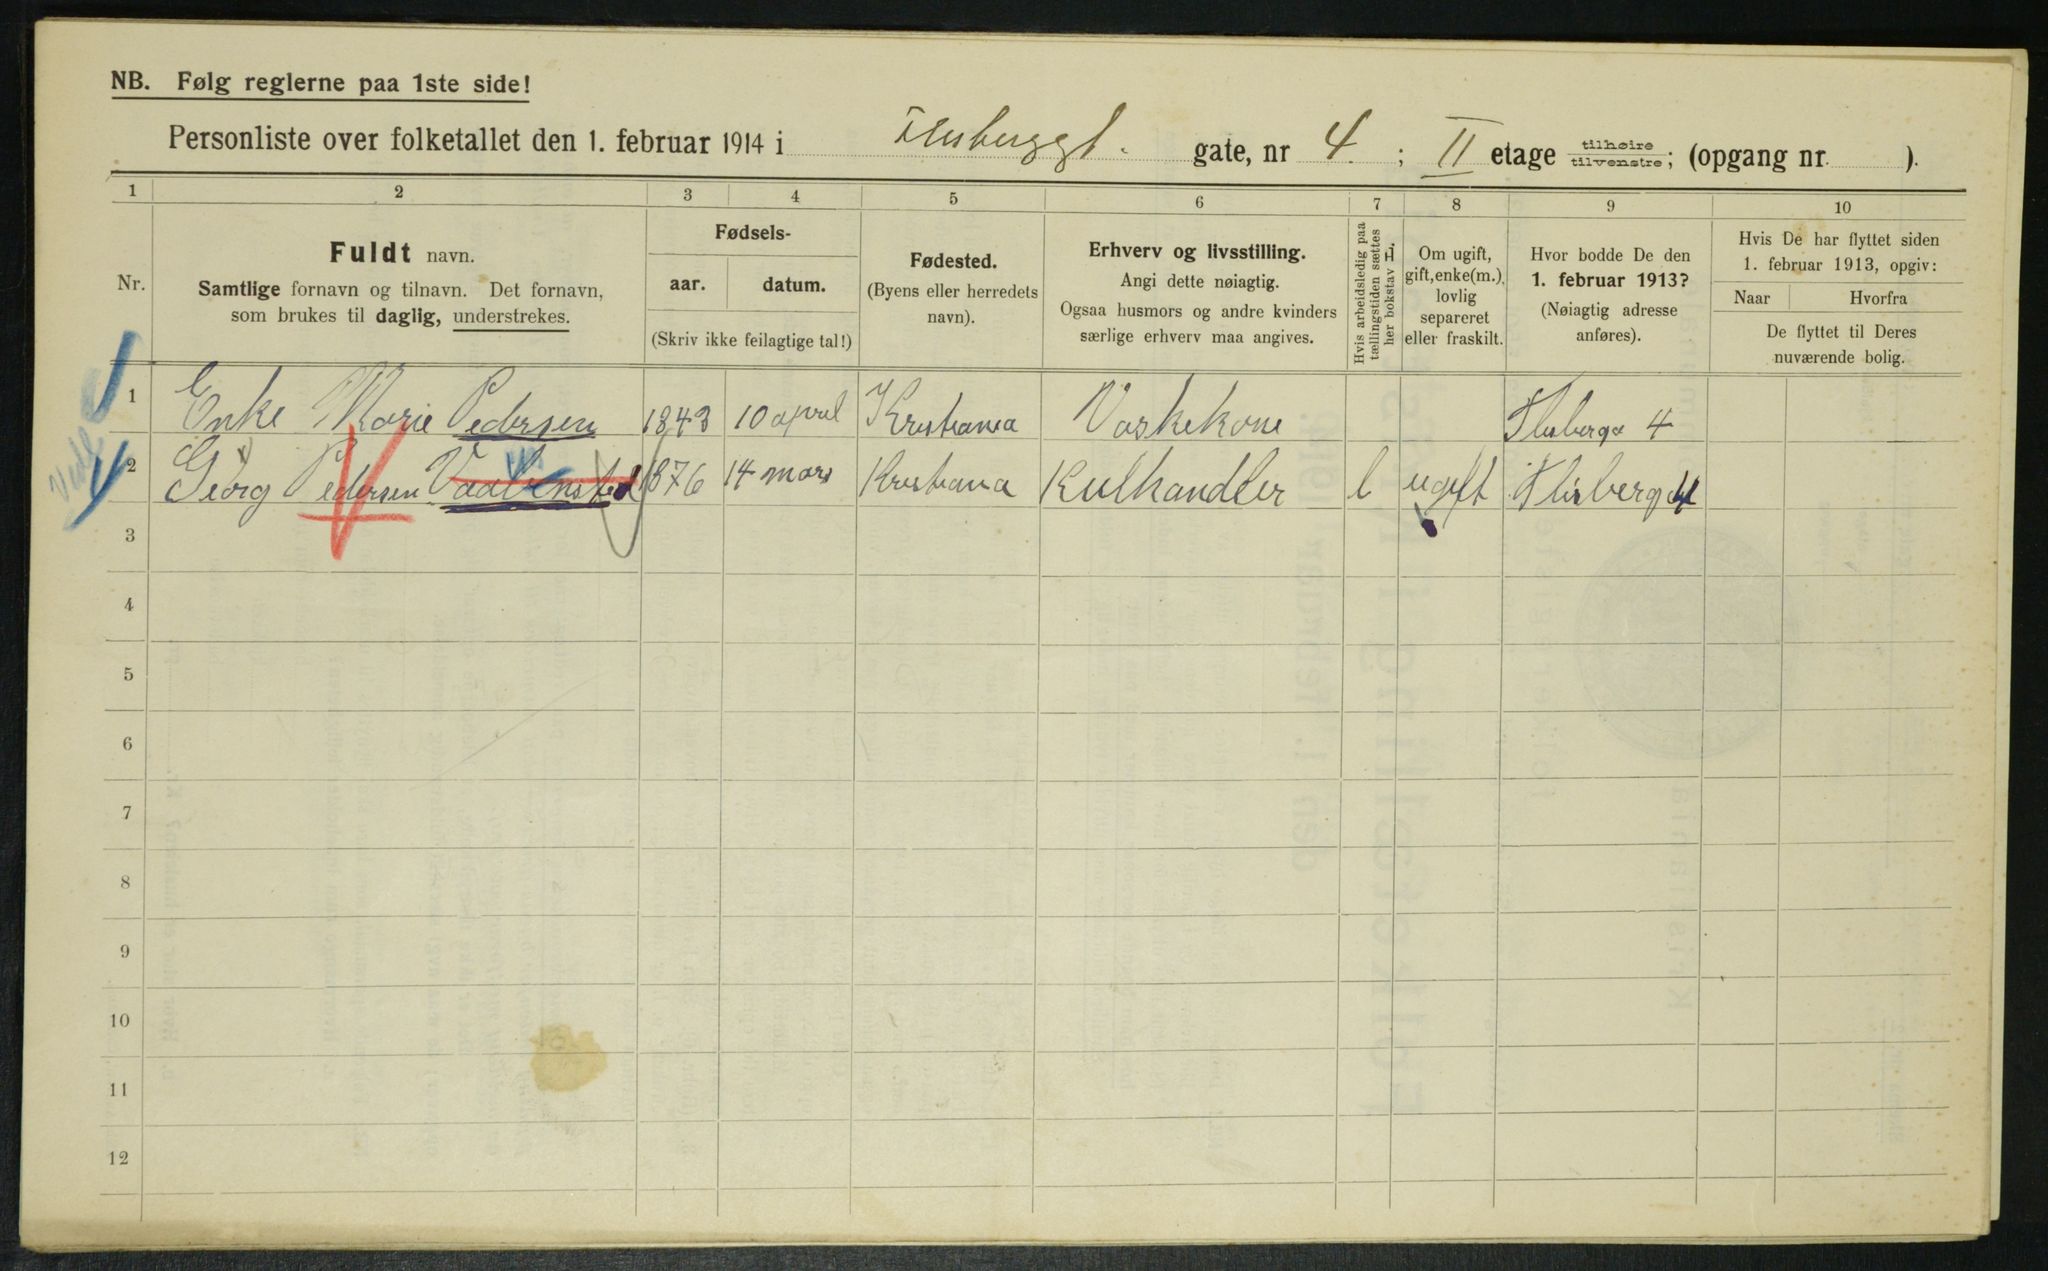 NB. Følg reglerne paa 1ste side!
Personliste over folketallet den 1. februar 1914 i gate, nr 4. ; II etage tilhøire tilvenstre; (opgang nr. ).
1 2 3 4 5 6 7 8 9 10
Nr.
Fuldt navn.
Samtlige fornavn og tilnavn. Det fornavn,
som brukes til daglig, understrekes.
Fødsels-
aar. datum.
(Skriv ikke feilagtige tal!)
Fødested.
(Byens eller herredets
navn).
Erhverv og livsstilling.
Angi dette nøiagtig.
Ogsaa husmors og andre kvinders
særlige erhverv maa angives.
Hvis arbeidsledig paa
tællingstiden sættes
her bokstav L.
Om ugift,
gift, enke(m.),
lovlig
separeret
eller fraskilt.
Hvor bodde De den
1. februar 1913?
(Nøiagtig adresse
anføres).
Hvis De har flyttet siden
1. februar 1913, opgiv:
Naar Hvorfra
De flyttet til Deres
nuværende bolig.
1 Enke Marie Pedersen 1843 10 april Kristiania Vaskekone Flisberga 4
2 Georg Pedersen 1876 14 mars Kristiania Kulhandler l ugift Flisberga 4
3
4
5
6
7
8
9
10
11
12